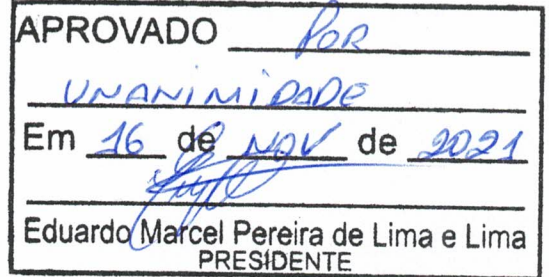 APROVADO POR
UNANIMIDADE
Em 16 de NOV de 2021
Eduardo Marcel Pereira de Lima e Lima
PRESIDENTE